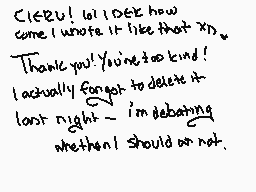 CIERU! lol I DEK how
come I wrote it like that XD.
Thank you! You're too kind!
I actually forgot to delete it
last night - i'm debating
whether I should or not.